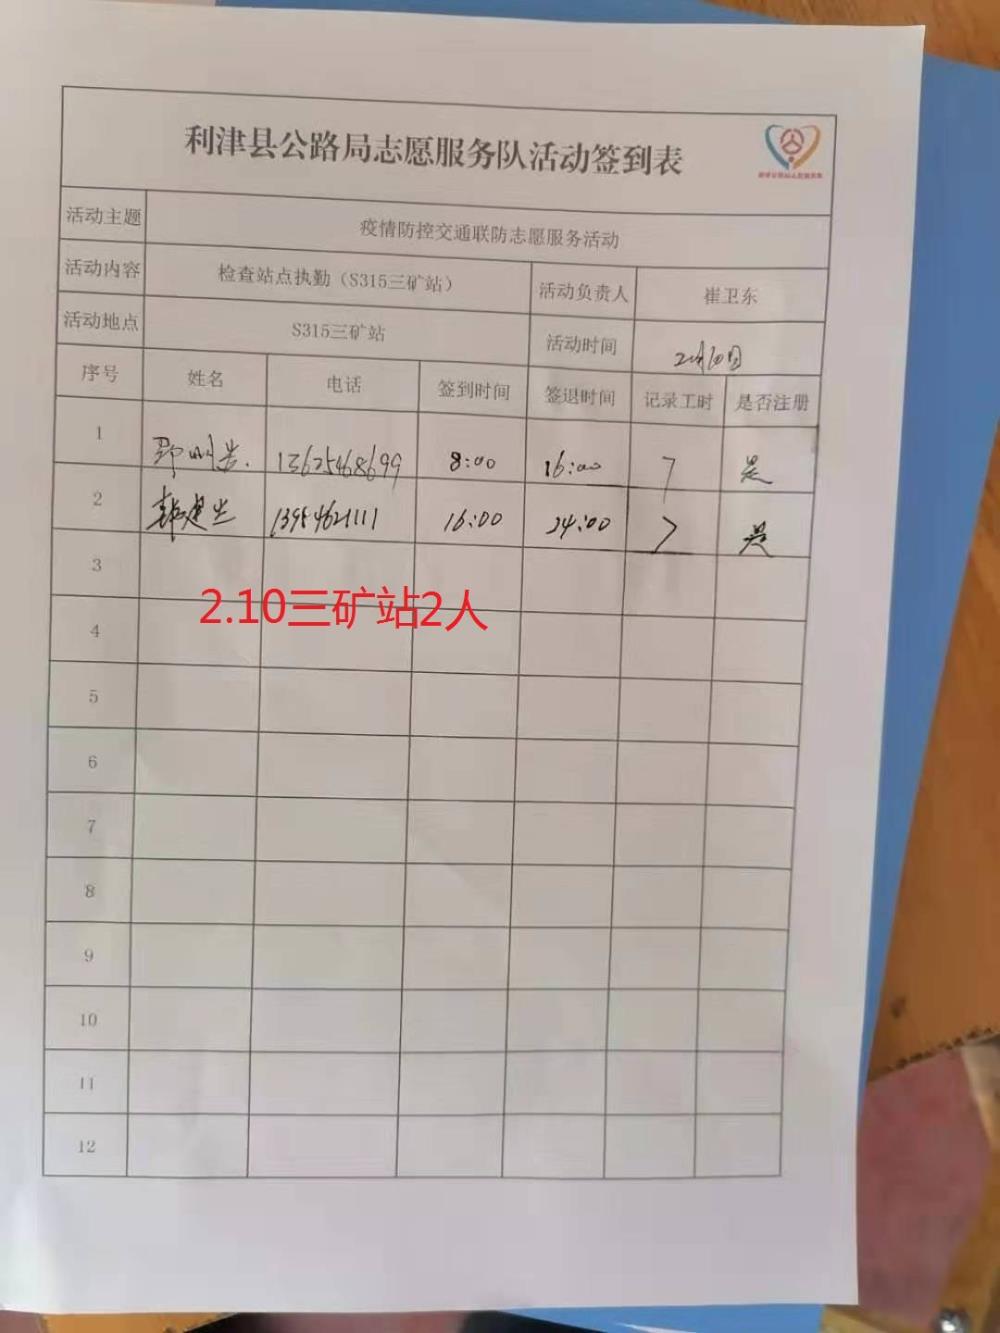 利津县公路局志愿服务队活动签到表
活动主题 疫情防控交通联防志愿服务活动
活动内容 检查站点执勤（S315三矿站） 活动负责人 崔卫东
活动地点 S315三矿站 活动时间 2月10日
序号 姓名 电话 签到时间 签退时间 记录工时 是否注册
1 13625468699 8:00 16:00 7 是
2 韩建兴 13954621111 16:00 24:00 7 是
3
2.10三矿站2人
4
5
6
7
8
9
10
11
12